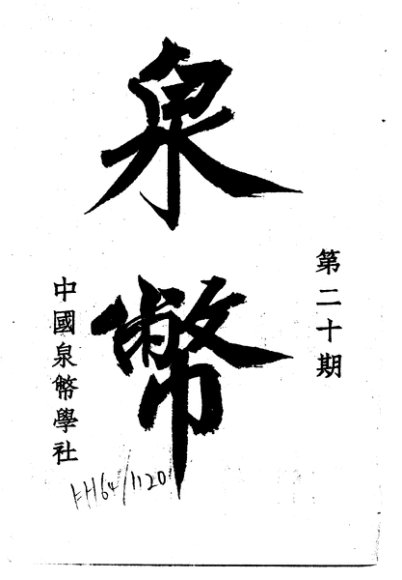 第二十期
泉幣
中國泉幣學社